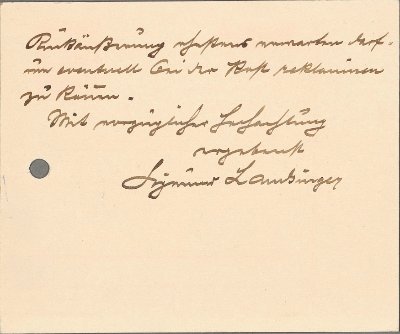 Rückäußerung ehestens erwarten darf,
um eventuell bei der Post reklamieren
zu können.
Mit vorzüglicher Hochachtung
ergebenst